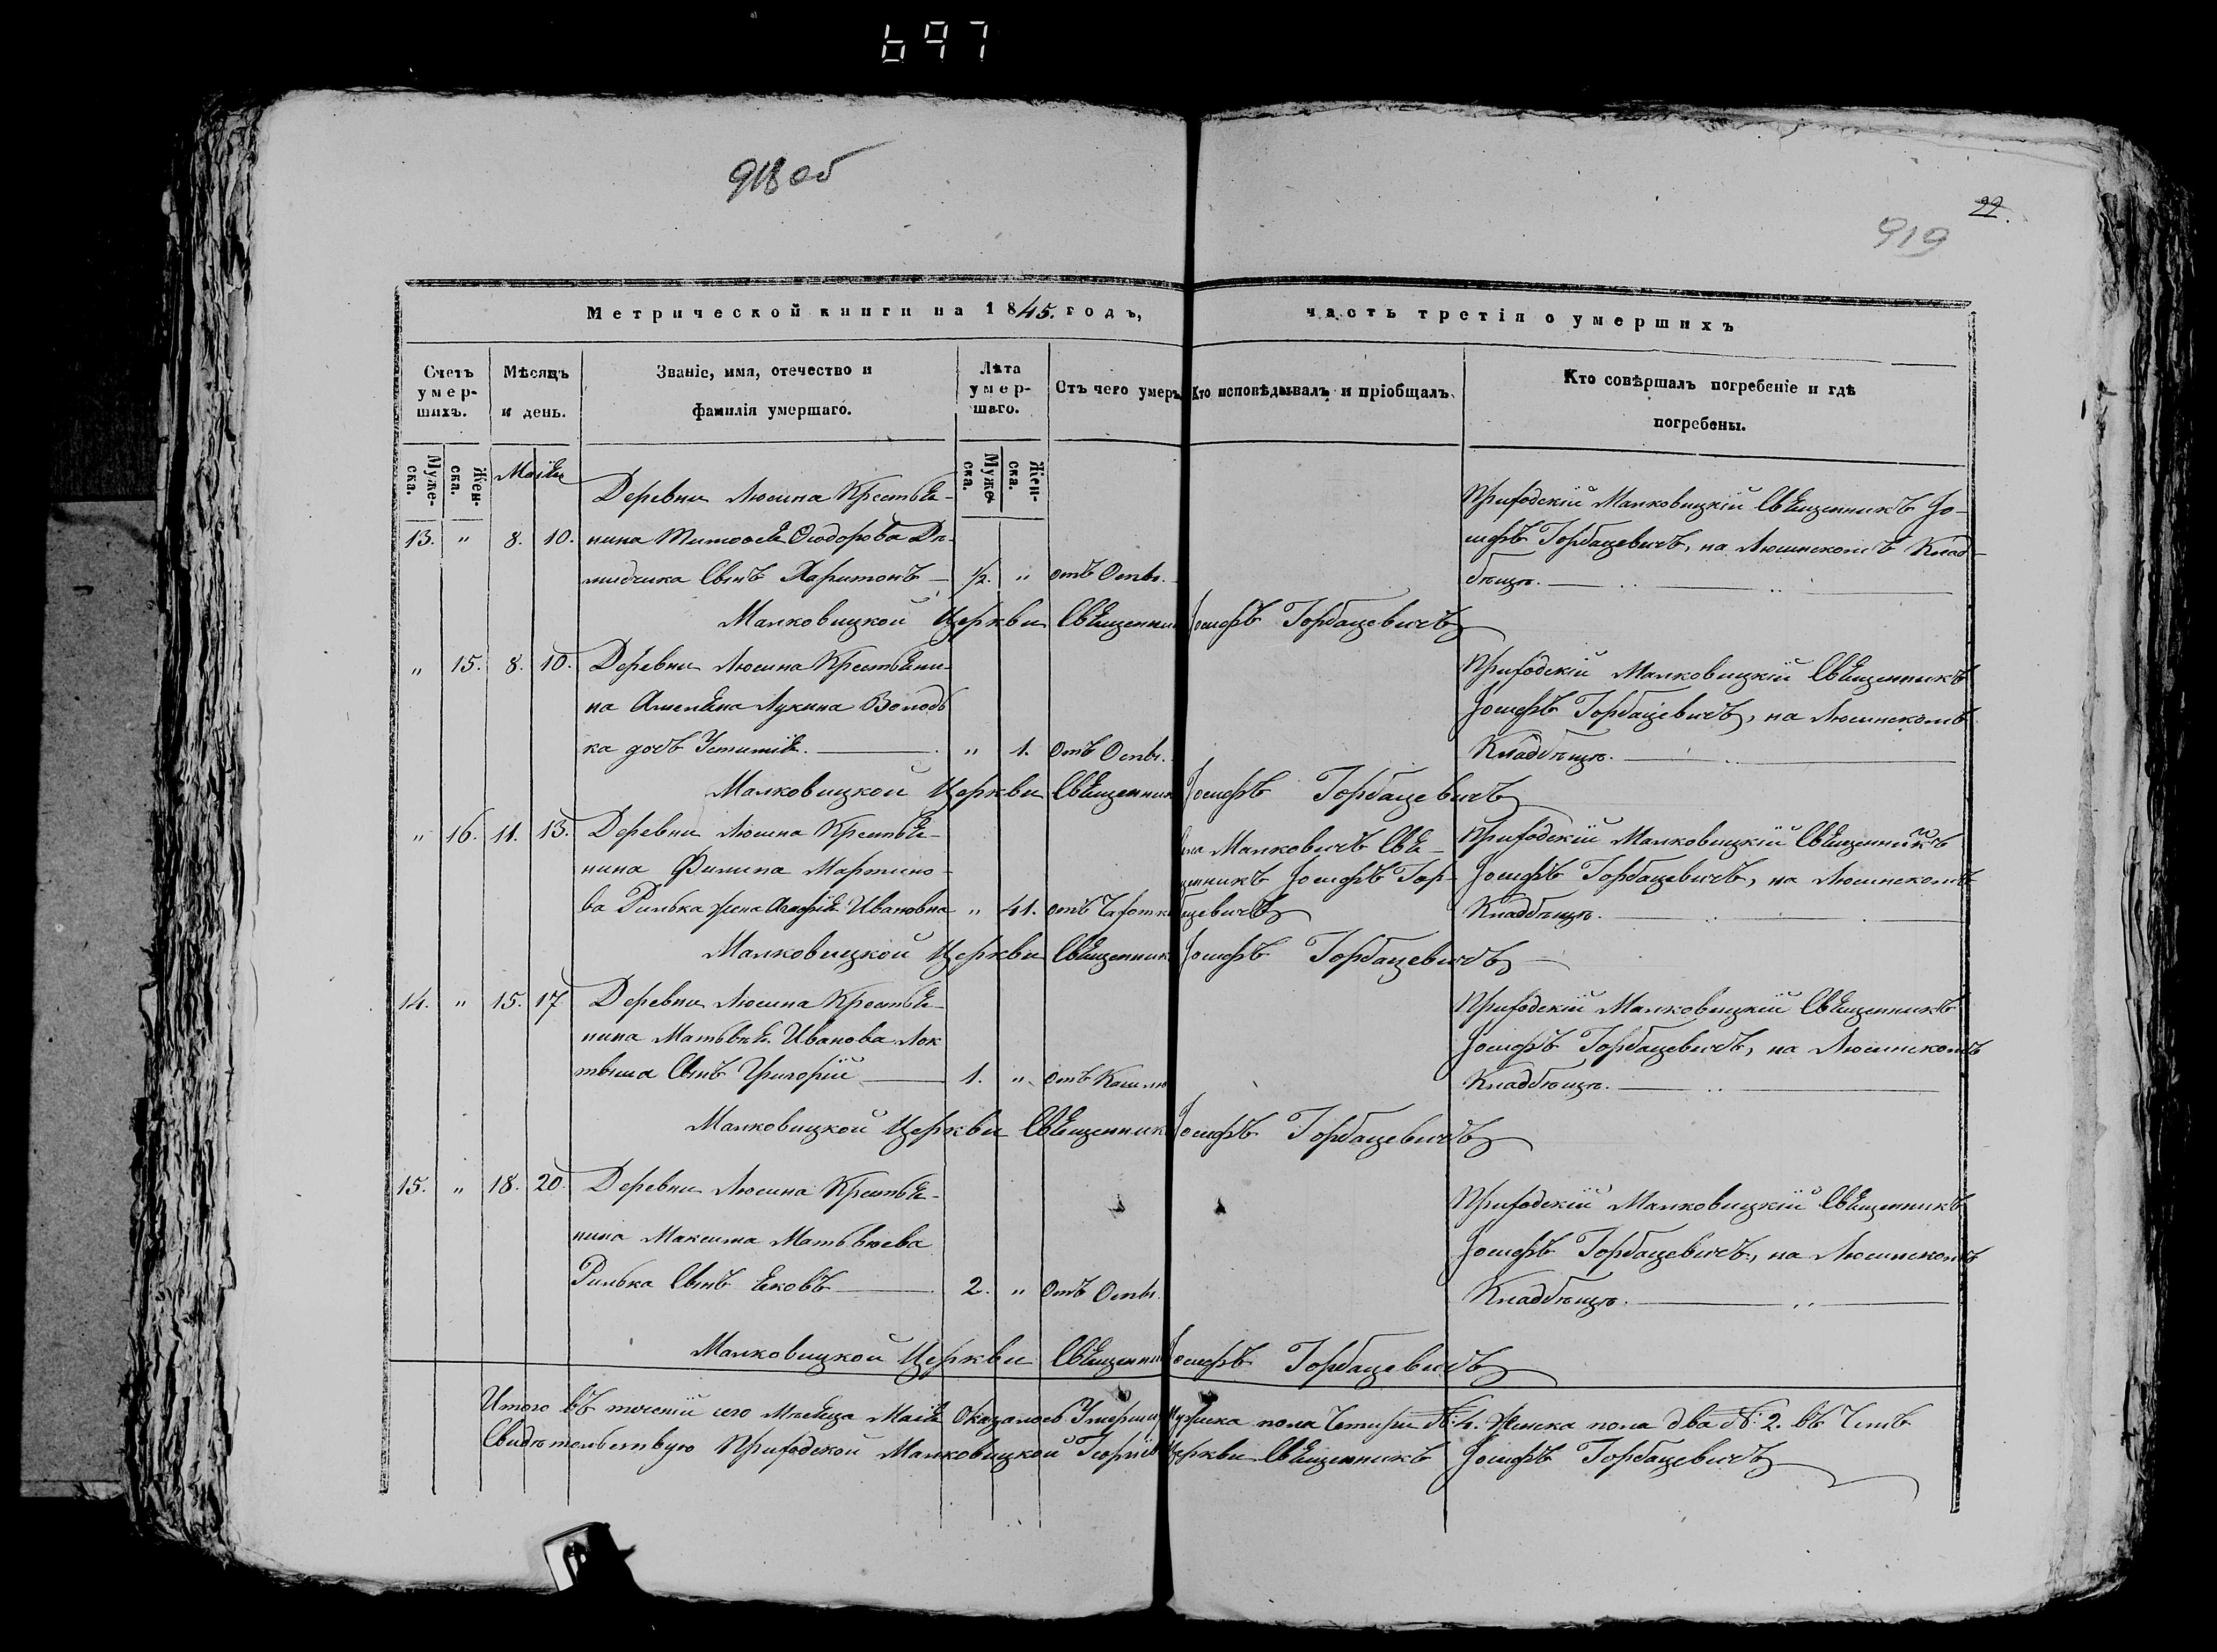 697
918 об
22.
919
Метрической книги на 1845. годъ, часть третія о умершихъ
Счетъ умершихъ.
Мѣсяцъ и день.
Званіе, имя, отечество и фамилія умершаго.
Лѣта умершаго.
Отъ чего умеръ
Кто исповѣдывалъ и пріобщалъ.
Кто совѣршалъ погребеніе и гдѣ погребены.
Мужеска.
Женска.
Маія
Мужеска.
Женска.
Деревни Люсина Крестья-
13. " 8. 10. нина Тимофея Ѳюдорова
Сынъ Харитонъ 1/2. " отъ Оспы.
Приходскій Малковицкій Священникъ Іо-
сифъ Горбацевичъ, на Люсинскомъ Клад-
бищѣ.
Малковицкой Церкви Священник Іосифъ Горбацевичъ
" 15. 8. 10. Деревни Люсина Крестьяни-
на Лукина Волод
ка дочь Устинія. " 1. Отъ Оспы.
Приходскій Малковицкій Священникъ
Іосифъ Горбацевичъ, на Люсинскомъ
Кладбищѣ.
Малковицкой Церкви Священник Іосифъ Горбацевичъ
" 16. 11. 13. Деревни Люсина Крестья-
нина Филипа Мартино-
ва Рилька жена Ивановна " 41. отъ Чахотки
Малковичъ Свя-
щенникъ Іосифъ Гор-
бцевичъ
Приходскій Малковицкій Священникъ
Іосифъ Горбацевичъ, на Люсинскомъ
Кладбищѣ.
Малковицкой Церкви Священник Іосифъ Горбацевичъ
14. " 15. 17 Деревни Люсина Крестья-
нина Матьвѣя Иванова Лок
тыша Сынъ Григорій 1. " отъ Кашлю
Приходскій Малковицкій Священникъ
Іосифъ Горбацевичъ, на Люсинскомъ
Кладбищѣ.
Малковицкой Церкви Священник Іосифъ Горбацевичъ
15. " 18. 20. Деревни Люсина Крестья-
нина Максима Матьвѣева
Рилька Сынъ Яковъ 2. " Отъ Оспы.
Приходскій Малковицкій Священникъ
Іосифъ Горбацевичъ, на Люсинскомъ
Кладбищѣ.
Малковицкой Церкви Священник Іосифъ Горбацевичъ
Итого въ теченіи сего Мѣсяца Маія Оказалось Умерших Мужеска пола Четыри №: 4. Женска пола два №: 2. въ Чемъ
Свидѣтельствую Приходской Малковицкой Георгіев Церкви Священникъ Іосифъ Горбацевичъ